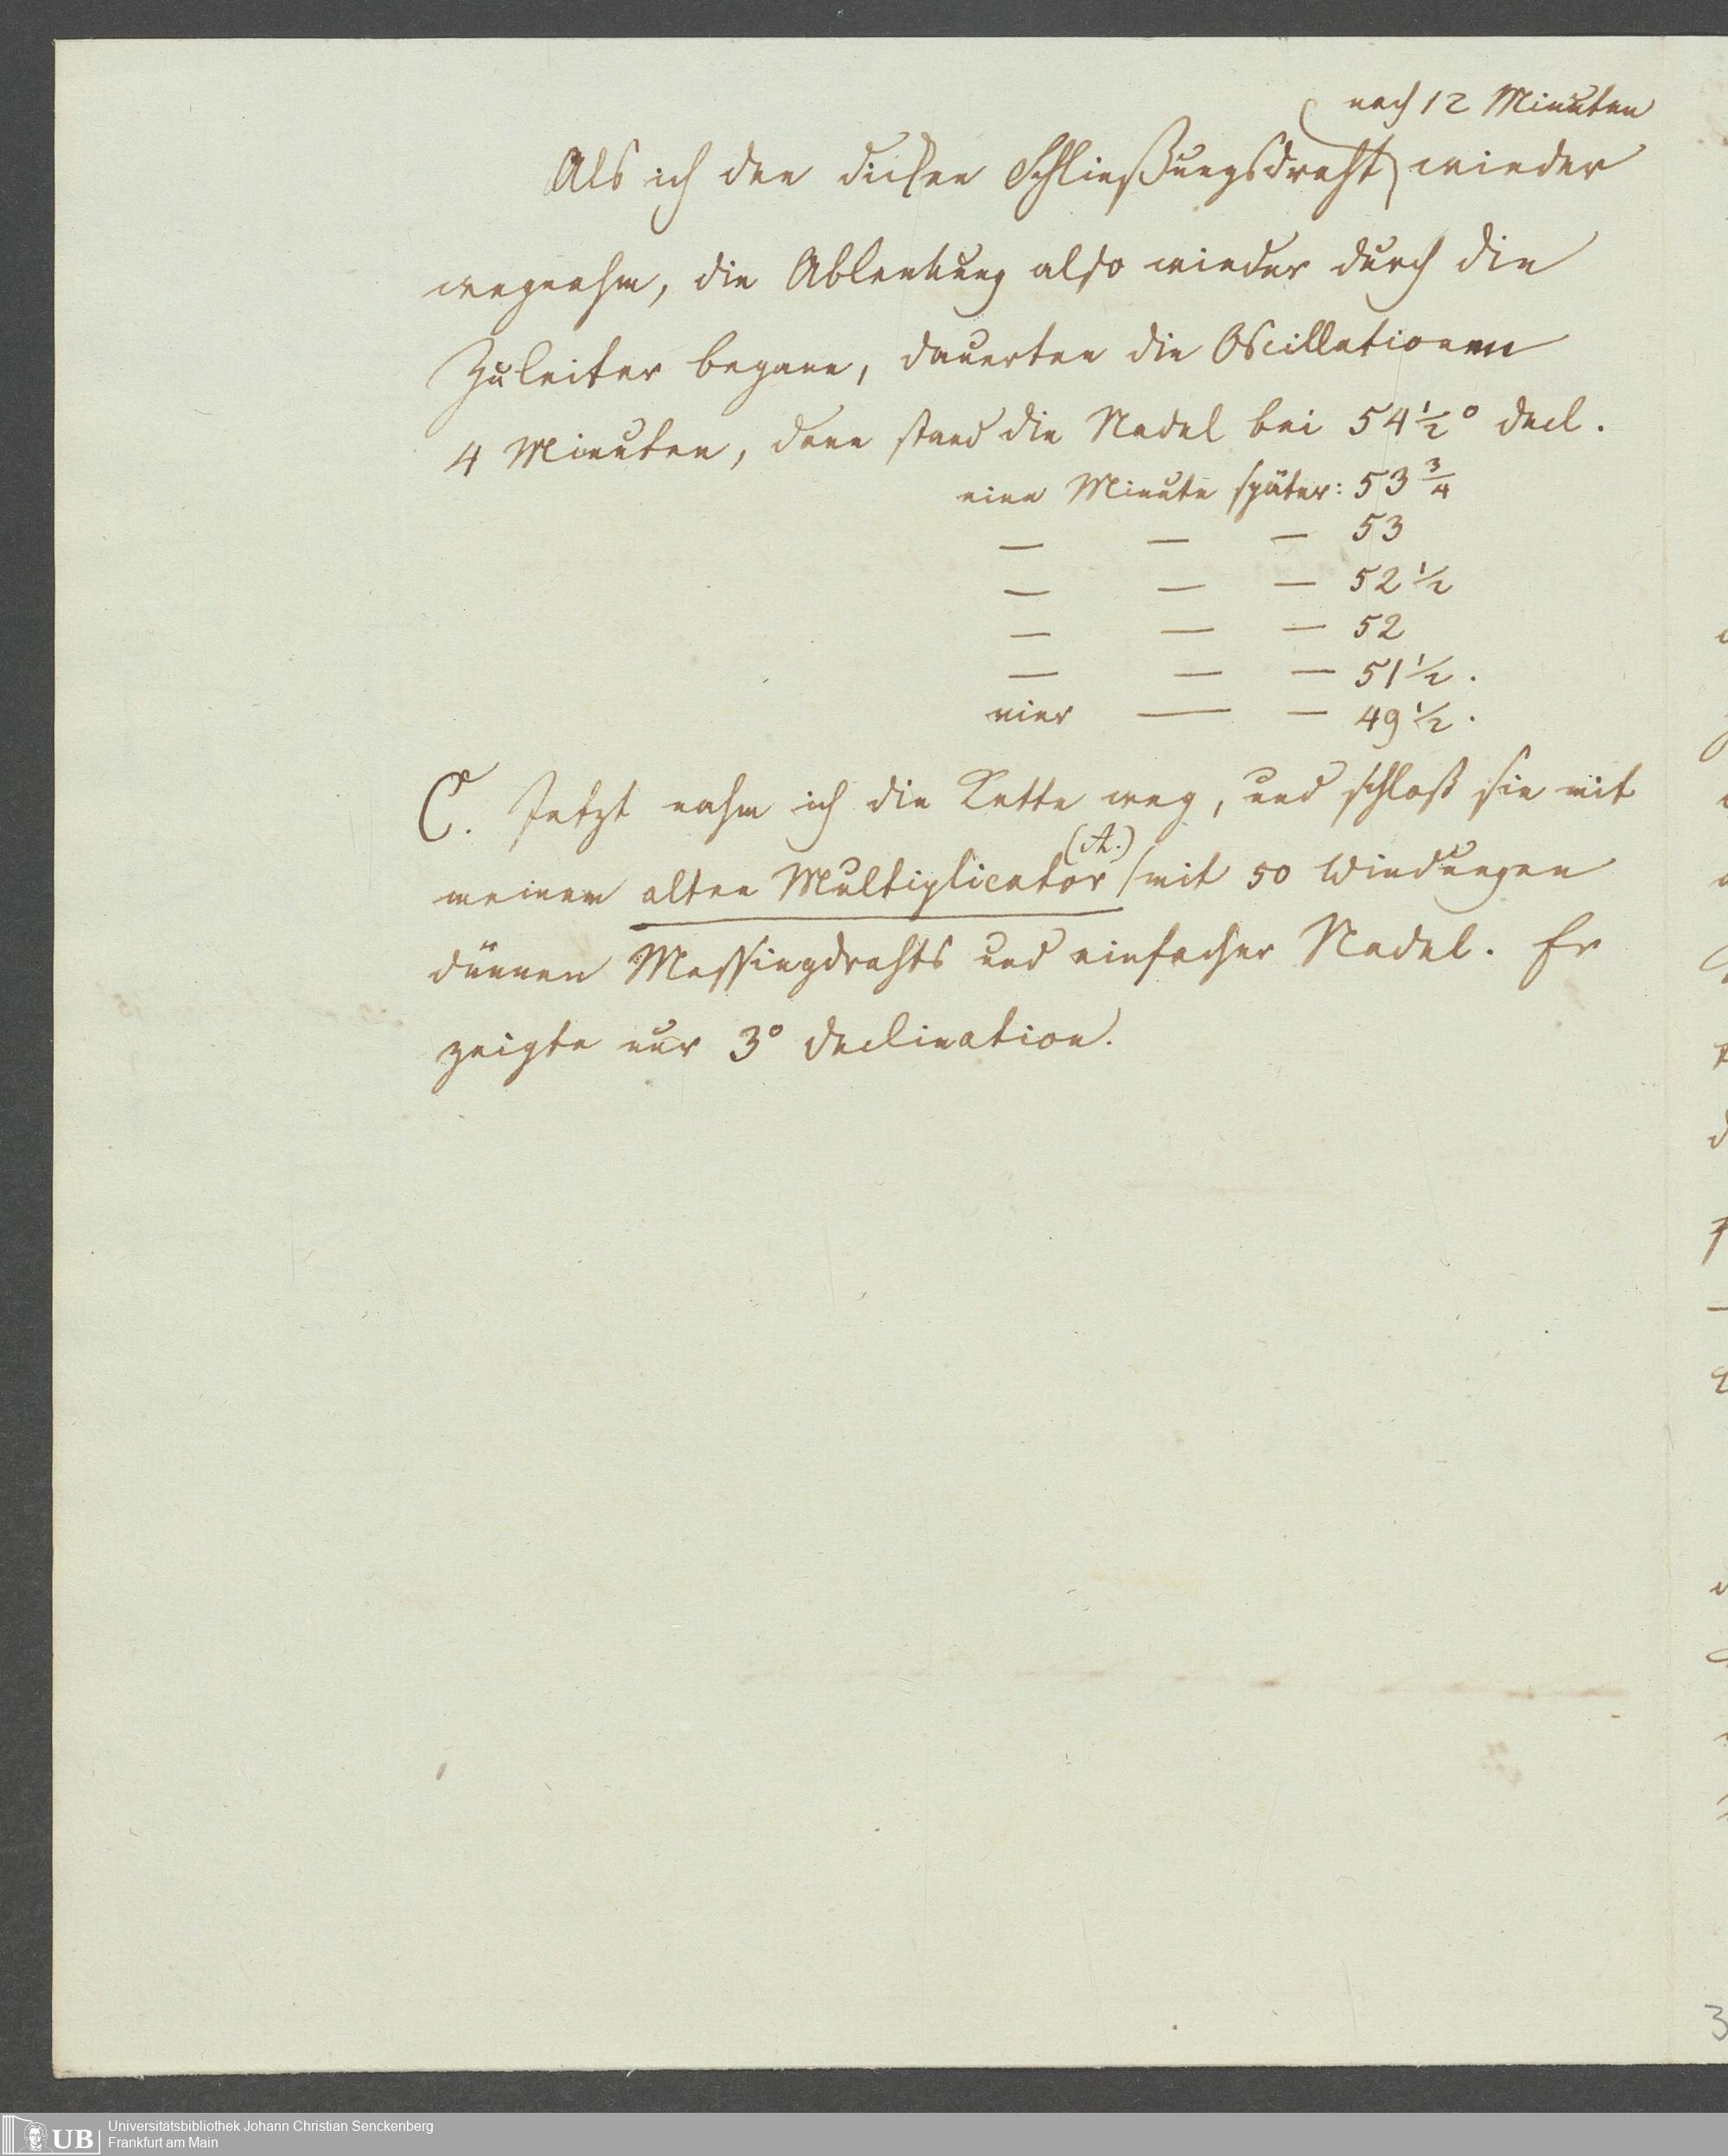 nach 12 Minuten
Als ich den dicken Schließungsdraht wieder
wegnahm, die Ablenkung also wieder durch die
Zuleiter begann, dauerten die Oscillationen
4 Minuten, dann stand die Nadel bei 54½° decl.
eine Minute später: 53¾
— — — 53
— — — 52½
— — — 52
— — — 51½.
vier — — 49½.
C. Jetzt nahm ich die Kette weg, und schloß sie mit
(A.)
meinem alten Multiplicator (mit 50 Windungen
dünnen Messingdrahts und einfacher Nadel. Er
zeigte nur 3° declination.
UB Universitätsbibliothek Johann Christian Senckenberg
Frankfurt am Main